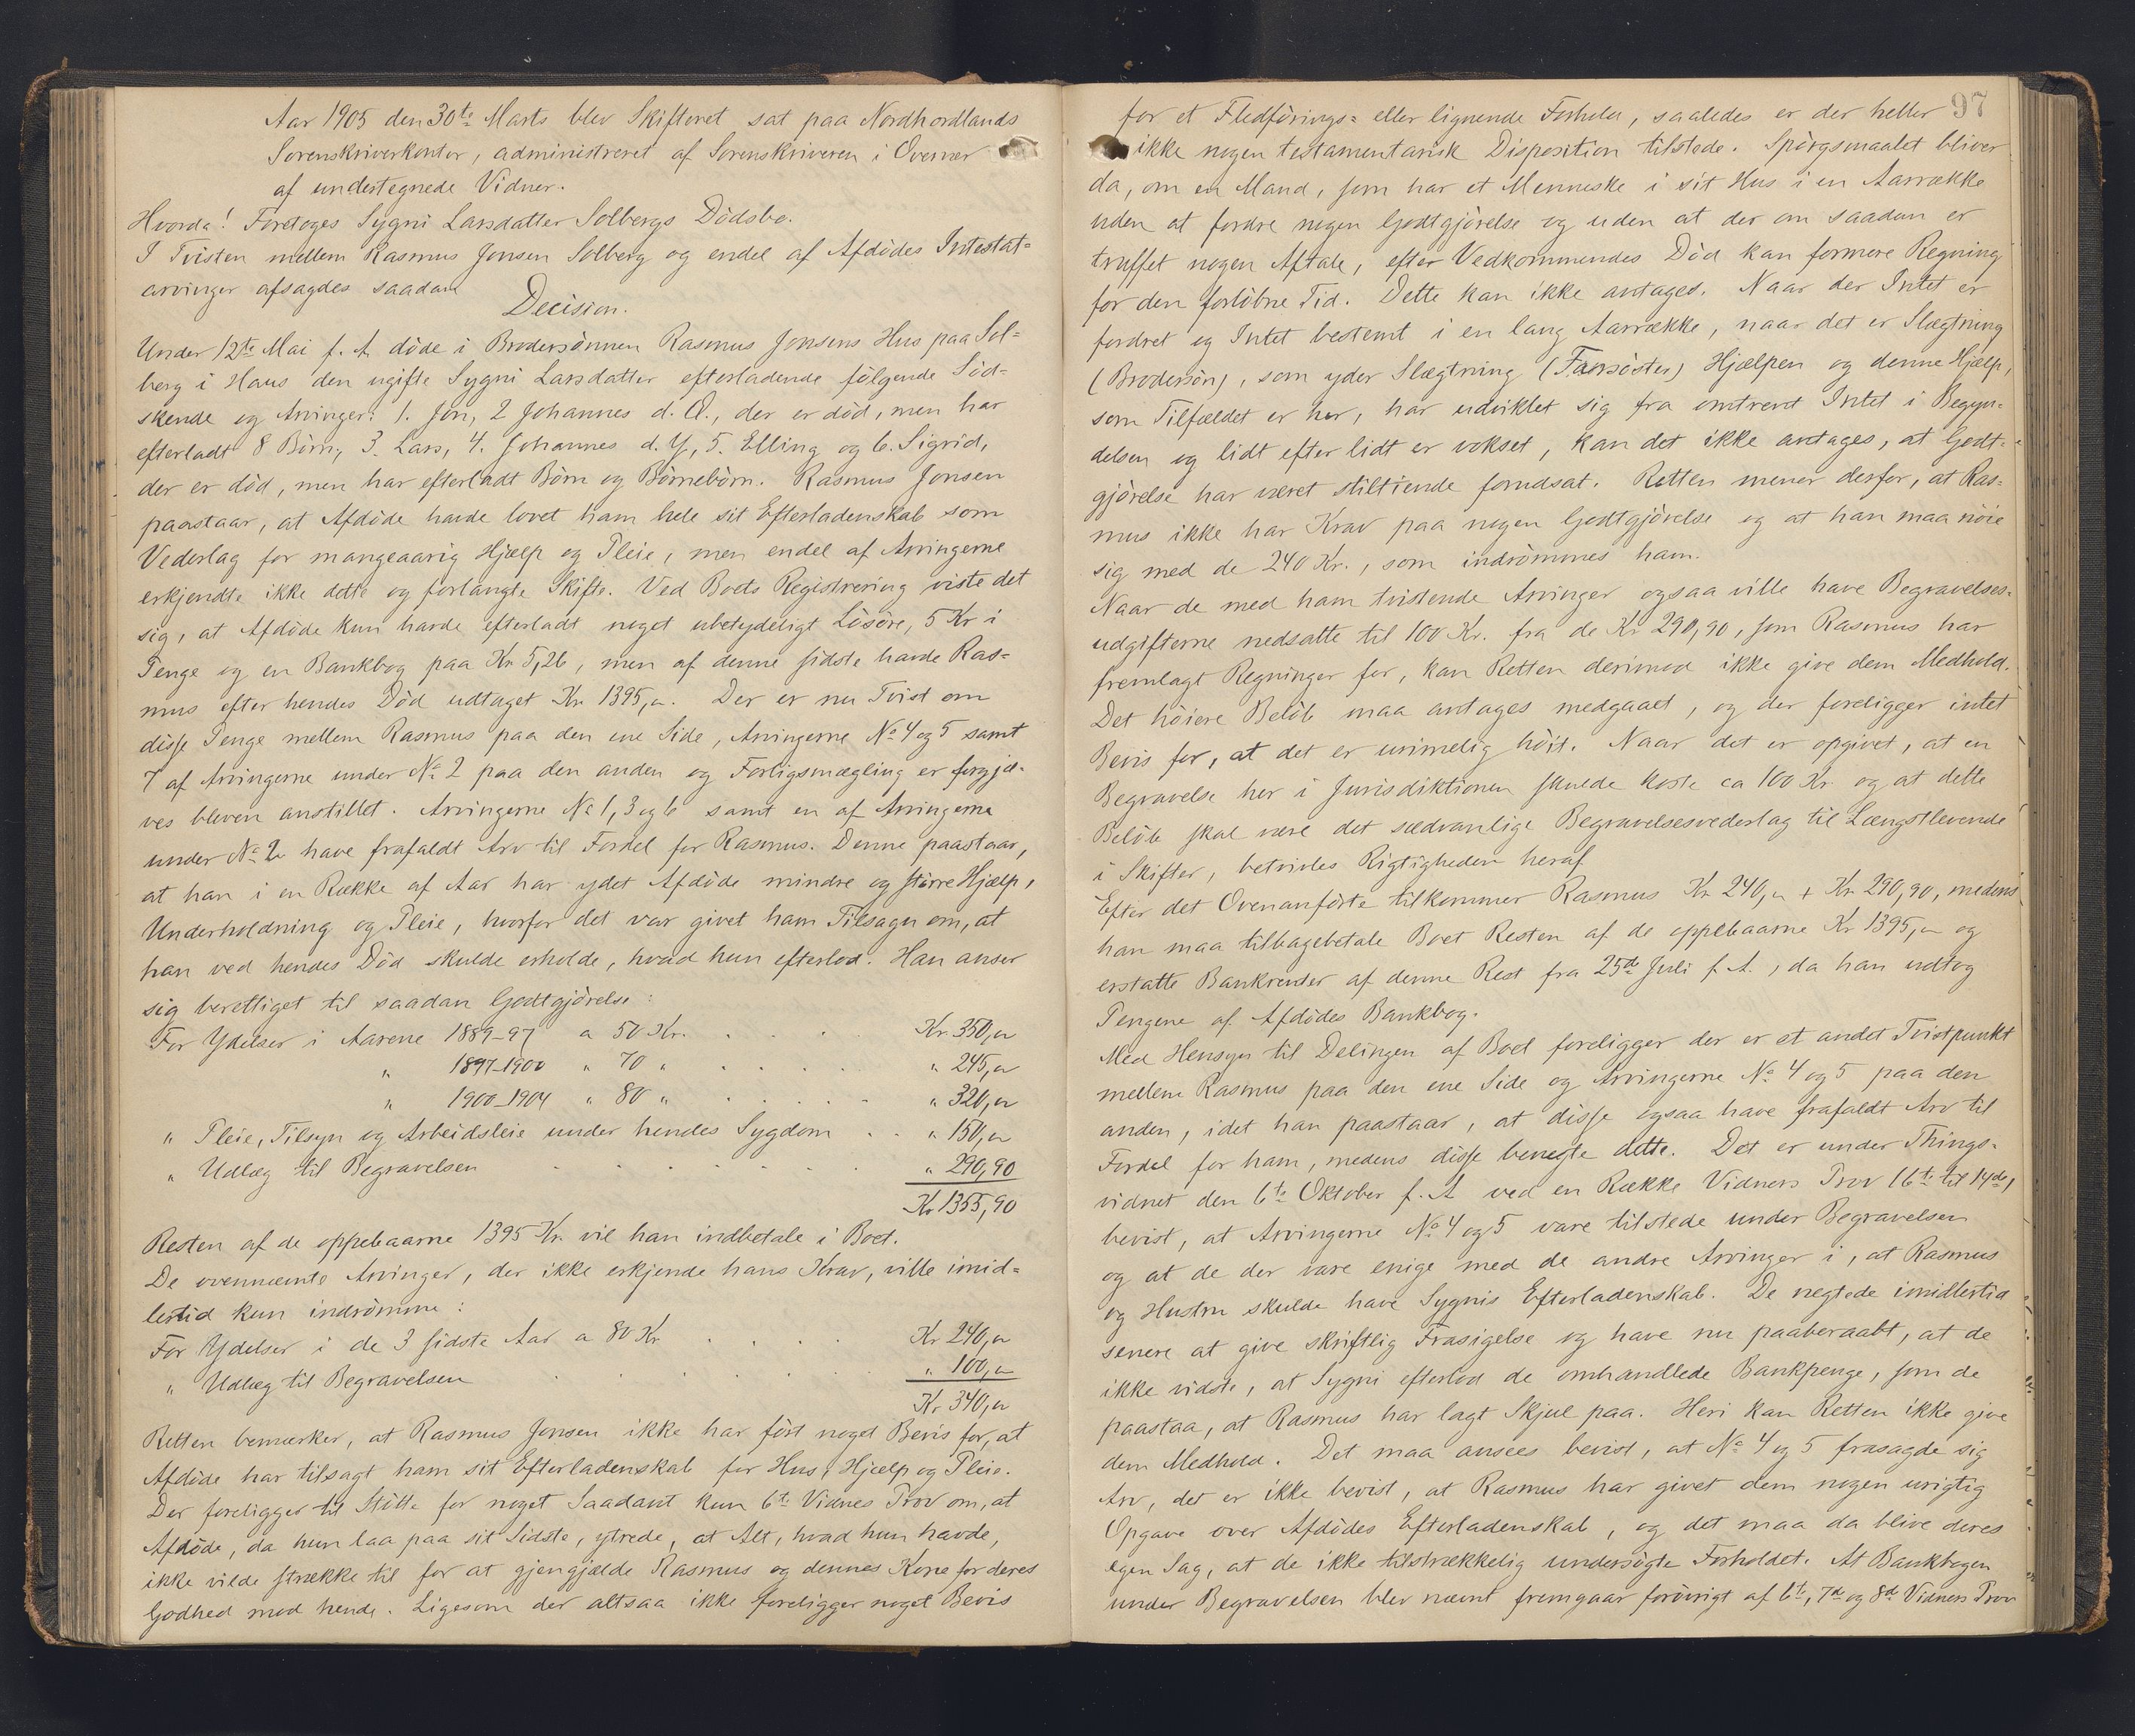 Aar 1905 den 30te Marts blev Skifteret sat paa Nordhordlands
Sorenskriverkontor, administreret af Sorenskriveren i Overvær
af undertegnede Vidner.
Hvorda! Foretoges Sygni Larsdatter Solbergs Dödsbo.
I Tvisten mellem Rasmus Jonsen Solberg og endel af Afdödes Intestat=
arvinger afsagdes saadan
Decision.
Under 12te Mai f. A. döde i Brodersönnen Rasmus Jonsens Hus paa Sol=
berg i Haus den ugifte Sygni Larsdatter efterladende fölgende Söd=
skende og Arvinger: 1. Jon, 2 Johannes d. Æ., der er död, men har
efterladt 8 Börn, 3. Lars, 4. Johannes d. Y, 5. Elling og 6. Sigrid,
der er död, men har efterladt Börn og Börnebörn. Rasmus Jonsen
paastaar, at Afdöde havde lovet ham hele sit Efterladenskab som
Vederlag for mangeaarig Hjælp og Pleie, men endel af Arvingerne
erkjendte ikke dette og forlangte Skifte. Ved Boets Registrering viste det
sig, at Afdöde kun havde efterladt noget ubetydeligt Lösöre, 5 Kr i
Penge og en Bankbog paa Kr 5,26, men af denne sidste havde Ras=
mus efter hendes Död udtaget Kr 1395,„. Der er nu Tvist om
disse Penge mellem Rasmus paa den ene Side, Arvingerne No 4 og 5 samt
7 af Arvingerne under No 2 paa den anden og Forligsmægling er forgjæ=
ves bleven anstillet. Arvingerne No 1, 3 og 6 samt en af Arvingerne
under No 2 have frafaldt Arv til Fordel for Rasmus. Denne paastaar,
at han i en Række af Aar har ydet Afdöde mindre og större Hjælp,
Underholdning og Pleie, hvorfor det var givet ham Tilsagn om, at
han ved hendes Död skulde erholde, hvad hun efterlod. Han anser
sig berettiget til saadan Godtgjörelse:
For Ydelser i Aarene 1889-97 a 50 Kr. . . . Kr. 350,„
„ 1897-1900 „ 70 „ . . . . „ 245,„
„ 1900-1904 „ 80 „ . . . . . „ 320,„
„ Pleie, Tilsyn og Arbeidsleie under hendes Sygdom . . „ 150,„
„ Udlæg til Begravelsen . . . . . . „ 290,90
Kr 1355,90
Resten af de oppebaarne 1395 Kr. vil han indbetale i Boet.
De ovennævnte Arvinger, der ikke erkjende hans Krav, ville imid=
lertid kun indrömme:
For Ydelser i de 3 sidste Aar a 80 Kr . . . . Kr 240,„
„ Udlæg til Begravelsen . . . . . . „ 100,„
Kr 340,„
Retten bemærker, at Rasmus Jonsen ikke har fört noget Bevis for, at
Afdöde har tilsagt ham sit Efterladenskab for Hus, Hjælp og Pleie.
Der foreligger til Stötte for noget Saadant kun 6te Vidnes Prov om, at
Afdöde, da hun laa paa sit Sidste, ytrede, at Alt, hvad hun havde,
ikke vilde strække til for at gjengjælde Rasmus og dennes Kone for deres
Godhed mod hende. Ligesom der altsaa ikke foreligger noget Bevis
97
for et Fledförings= eller lignende Forhold, saaledes er der heller
ikke nogen testamentarisk Disposition tilstede. Spörgsmaalet bliver
da, om en Mand, som har et Menneske i sit Hus i en Aarrække
uden at fordre nogen Godtgjörelse og uden at der om saadan er
truffet nogen Aftale, efter Vedkommendes Död kan formere Regning
for den forlöbne Tid. Dette kan ikke antages. Naar der Intet er
fordret og Intet bestemt i en lang Aarrække, naar det er Slægtning
(Brodersön), som yder Slægtning (Farsöster) Hjælpen og denne Hjælp,
som Tilfældet er her, har udviklet sig fra omtrent Intet i Begyn=
delsen og lidt efter lidt er vokset, kan det ikke antages, at Godt=
gjörelse har været stiltiende forudsat. Retten mener derfor, at Ras=
mus ikke har Krav paa nogen Godtgjörelse og at han maa nöie
sig med de 240 Kr., som indrömmes ham.
Naar de med ham tvistende Arvinger ogsaa ville have Begravelses=
udgifterne nedsatte til 100 Kr. fra de Kr 290,90, som Rasmus har
fremlagt Regninger for, kan Retten derimod ikke give dem Medhold.
Det höiere Belöb maa antages medgaaet, og der foreligger intet
Bevis for, at det er urimelig höit. Naar det er opgivet, at en
Begravelse her i Jurisdiktionen skulde koste ca 100 Kr. og at dette
Belöb skal være det sædvanlige Begravelsesvederlag til Længstlevende
i Skifter, betviles Rigtigheden heraf
Efter det Ovenanförte tilkommer Rasmus Kr 240,„ + Kr 290,90, medens
han maa tilbagebetale Boet Resten af de oppebaarne Kr 1395,„ og
erstatte Bankrenter af denne Rest fra 25de Juli f. A., da han udtog
Pengene af Afdödes Bankbog.
Med Hensyn til Delingen af Boet foreligger der er et andet Tvistpunkt
mellem Rasmus paa den ene Side og Arvingerne No 4 og 5 paa den
anden, idet han paastaar, at disse ogsaa have frafaldt Arv til
Fordel for ham, medens disse benegte dette. Det er under Things=
vidnet den 6te Oktober f. A ved en Række Vidners Prov (6te til 14de)
bevist, at Arvingerne No 4 og 5 vare tilstede under Begravelsen
og at de der vare enige med de andre Arvinger i, at Rasmus
og Hustru skulde have Sygnis Efterladenskab. De negtede imidlertid
senere at give skriftlig Frasigelse og have nu paaberaabt, at de
ikke vidste, at Sygni efterlod de omhandlede Bankpenge, som de
paastaa, at Rasmus har lagt Skjul paa. Heri kan Retten ikke give
dem Medhold. Det maa ansees bevist, at No 4 og 5 frasagde sig
Arv, det er ikke bevist, at Rasmus har givet dem nogen urigtig
Opgave over Afdödes Efterladenskab, og det maa da blive deres
egen Sag, at de ikke tilstrækkelig undersögte Forholdet. At Bankbogen
under Begravelsen blev nævnt fremgaar forövrigt af 6te, 7de og 8de Vidners Prov